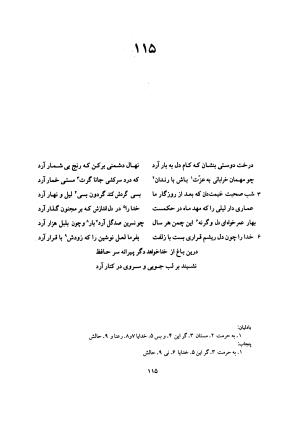 ۱۱۵
درخت دوستی بنشان که کام دل به بار آرد نهال دشمنی برکن که رنج بی شمار آرد
چو مهمان خراباتی به عزّت۱ باش با رندان۲ که درد سرکشی جانا گرت۳ مستی خمار آرد
۳ شب صحبت غنیمت‌دان که بعد از روزگار ما بسی گردش‌کند گردون بسی۴ لیل و نهار آرد
عماری دار لیلی را که مهد ماه در حکمست خدا را۵ در دل‌اندازش که بر مجنون گذار آرد
بهار عمرخواه‌ای دل و گرنه۶ این چمن هر سال چونسرین صدگل آرد۷بار۸ وچون بلبل هزار آرد
۶ خدا را چون دل ریشم قراری بست با زلفت بفرما لعل نوشین را که زودش۹ با قرار آرد
درین باغ از خداخواهد دگر پیرانه سر حافظ
نشیند بر لب جویی و سروی در کنار آرد
بادلیان:
۱. به حرمت ۲. مستان ۳. گر این ۴. و بس ۵. خدایا ۷و۸. رعنا و ۹. حالش
پنجاب:
۱. به حرمت ۳. گر این ۵. خدایا ۶. نی ۹. حالش
۱۱۵